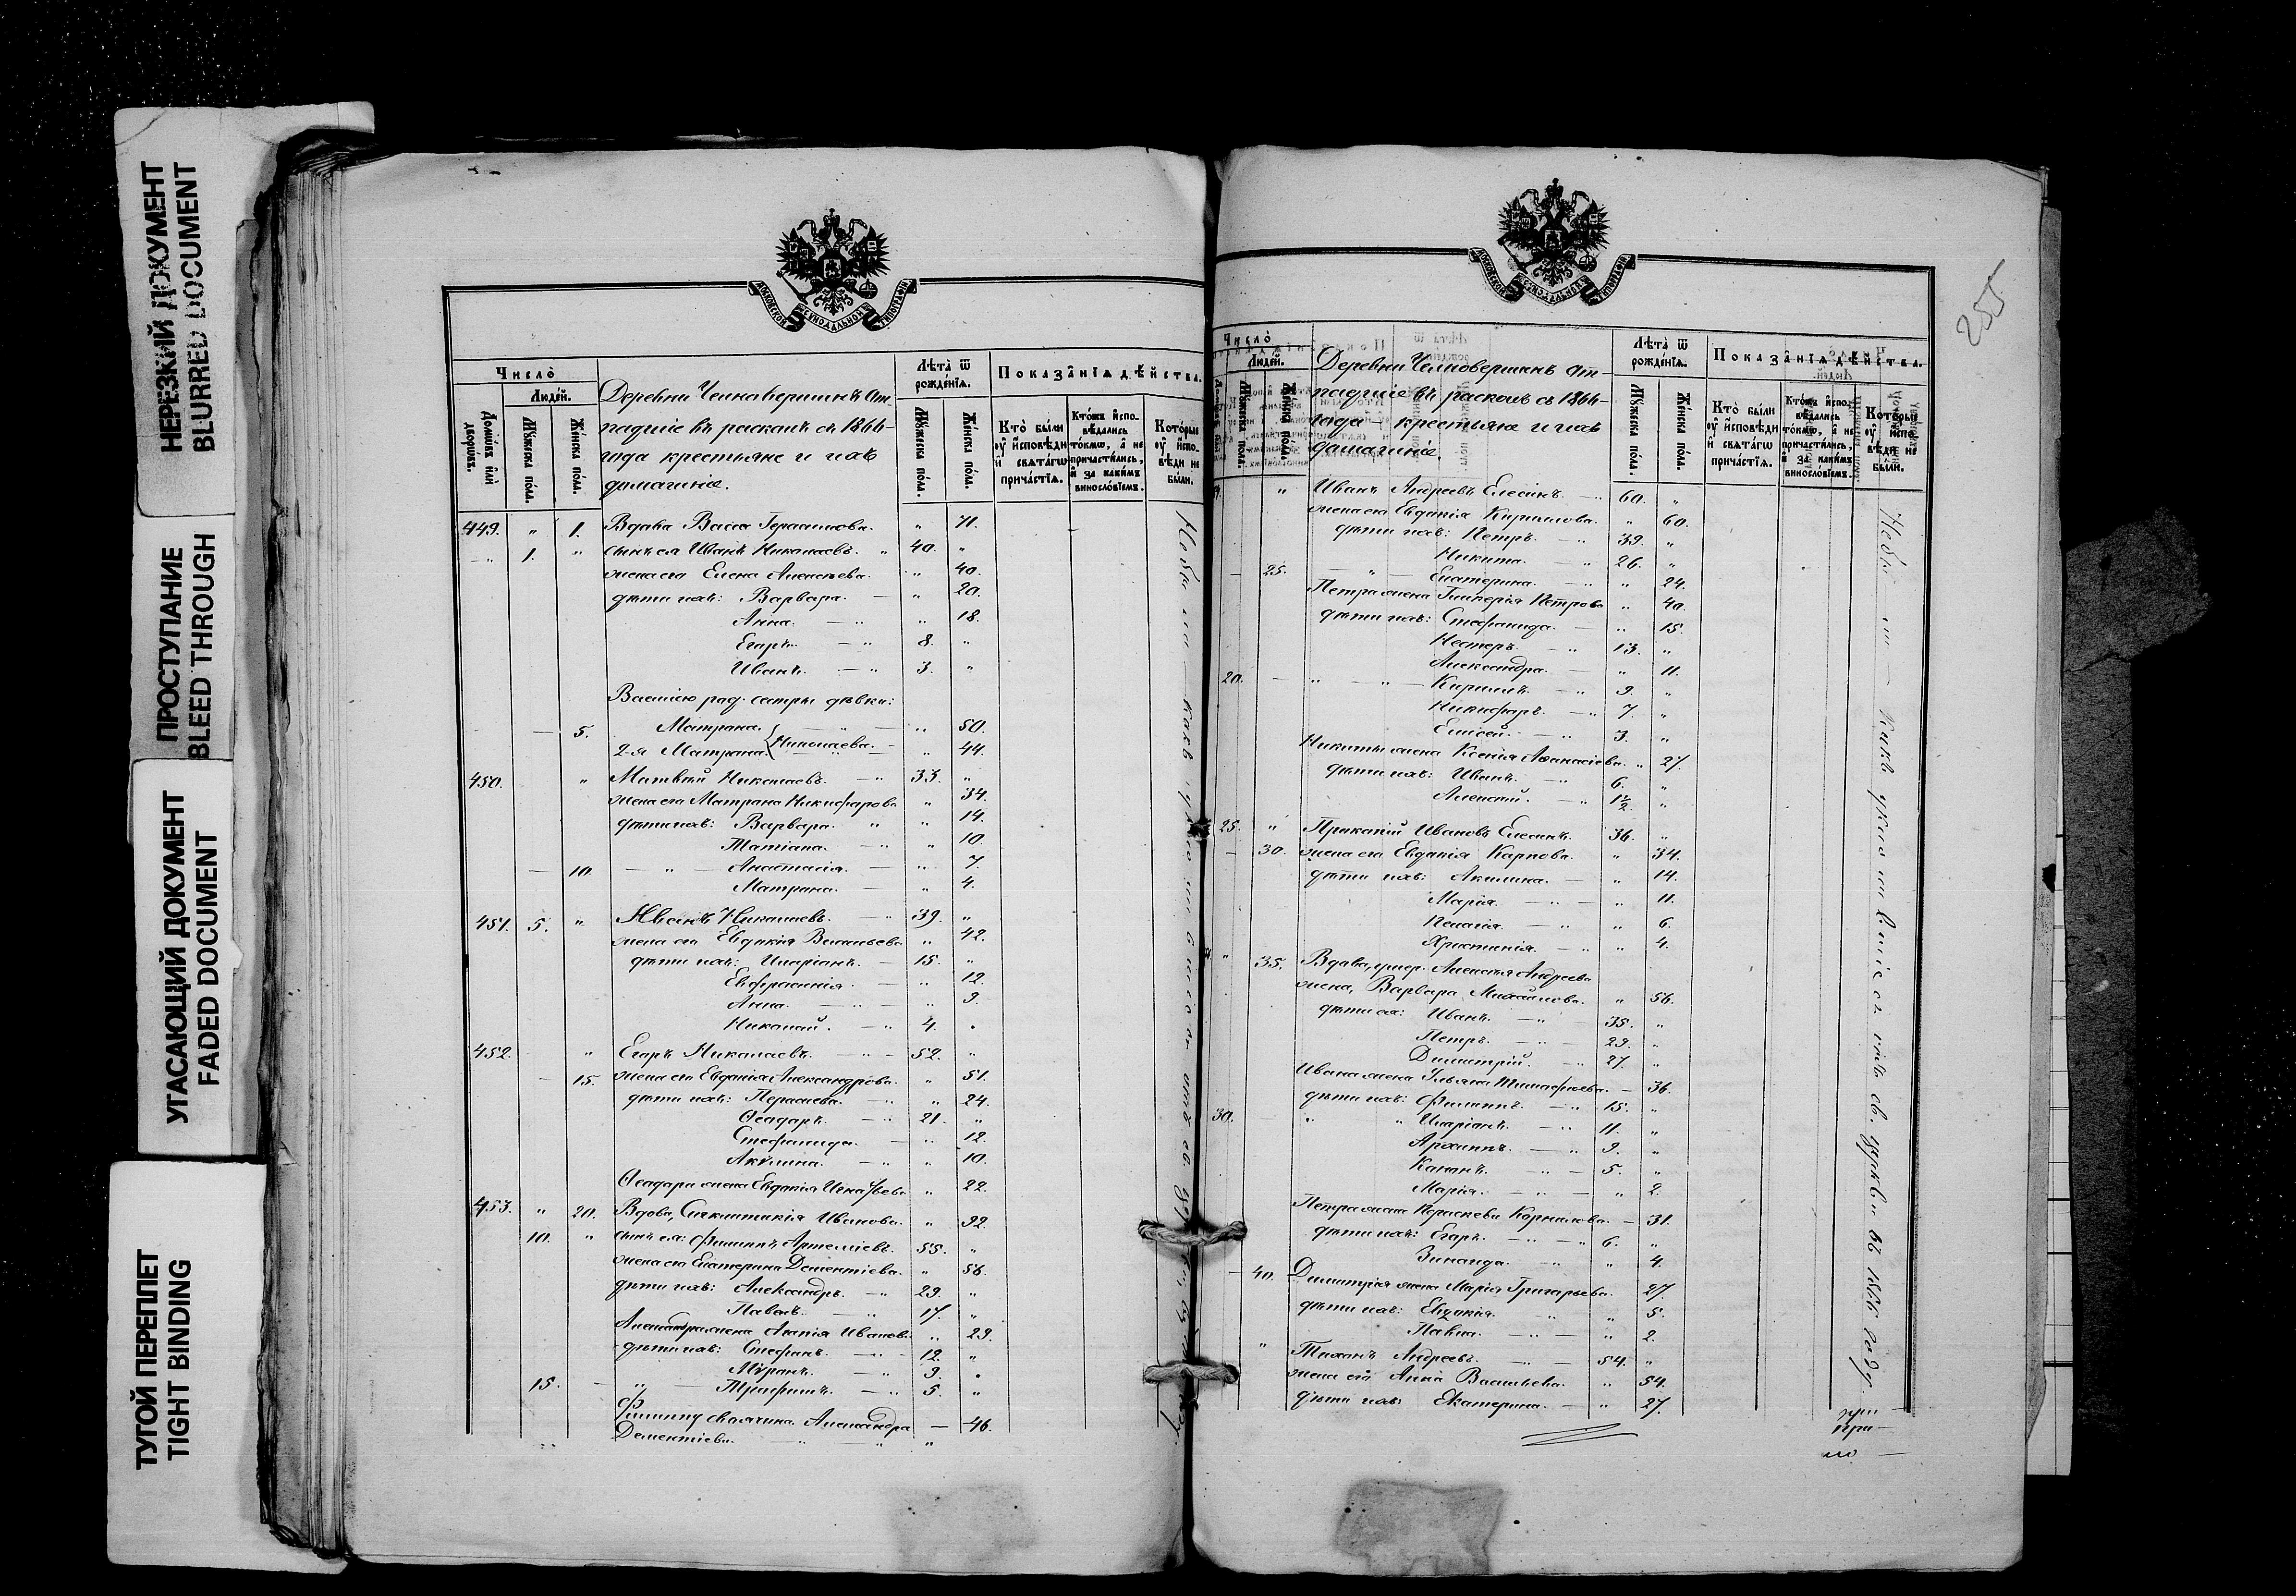 НЕРЕЗКИЙ ДОКУМЕНТ
BLURRED DOCUMENT
ПРОСТУПАНИЕ
BLEED THROUGH
УГАСАЮЩИЙ ДОКУМЕНТ
FADED DOCUMENT
ТУГОЙ ПЕРЕПЛЕТ
TIGHT BINDING
МОСКОВСКОЙ СѴНОДАЛЬНОЙ ТИПОГРАФІИ
Число̀
Людéй.
Домѡ́въ и҆лѝ дворѡ́въ.
Мꙋ́жеска по́ла.
Же́нска по́ла.
Деревни Челновершинъ от-
падшіе въ расколъ съ 1866-
года крестьяне и ихъ
домашніе.
Лѣ́та ѿ рожде́нїѧ.
Мꙋ́жеска по́ла.
Же́нска по́ла.
Показа̂нїѧ дѣ́йства.
Кто̀ бы́ли ᲂу҆ и҆́сповѣди и҆ свѧта́гѡ прича́стїѧ.
Кто́жъ и҆сповѣ́дались то́кмѡ, а҆ не причасти́лись, и҆ за каки́мъ винослóвїемъ.
Кото́рые ᲂу҆ и҆́сповѣди не бы́ли.
449. " 1. Вдова Васса Герасимова. " 71.
" 1. " сынъ ея Иванъ Николаевъ. " 40. "
жена его Елена Алексѣева. " 40.
дѣти ихъ: Варвара. — " 20.
Анна. — " " 18.
Егоръ. — " 8. "
Иванъ. — " 3. "
род. сестры дѣвки:
— 5. Матрона. " 50.
2-я Матрона. Николаева. — " 44.
450. " Матвѣй Николаевъ. — " 33. "
жена его Матрона Никифорова " 34.
дѣти ихъ: Варвара. " " 14.
Татіана. — " " 10.
— 10. — " — Анастасія. — " 7.
Матрона. — " 4.
451. 5. " Иванъ Николаевъ. — " 39. "
жена его Евдокія Васильева " 42.
дѣти ихъ: Иларіонъ. — 15. "
Евфросинія. — " 12.
Анна. — " — " 9.
Николай. — " 4. "
452. " Егоръ Николаевъ. — " — 52. "
— 15. жена его Евдокія Александрова. " 51.
дѣти ихъ: — " " 24.
Ѳеодоръ. — " 21. "
Стефанида. — " 12.
Акѵлина. — " " 10.
Ѳеодора жена Евдокія Игнатьева " 22.
453. " 20. Вдова, Синклитикія Иванова. " 92.
10. " сынъ ея: Филиппъ Артеміевъ. 55. "
жена его Екатерина Дементіева. " 56.
дѣти ихъ: Александръ. — " 29. "
Павелъ. — " 17. "
Александра жена Иванова " 29.
дѣти ихъ: Стефанъ. — " — 12. "
Мѵронъ. — " 9. "
15. — " — Трофимъ. — " 5. "
Филиппу свояч­ина Александра — 46.
Дементіева. — " — " "
255
МОСКОВСКОЙ СѴНОДАЛЬНОЙ ТИПОГРАФІИ
Число̀
Людéй.
Мꙋ́жеска по́ла.
Же́нска по́ла.
Деревни Челновершинъ от-
падшіе въ расколъ съ 1866-
года — крестьяне и ихъ
домашніе.
Лѣ́та ѿ рожде́нїѧ.
Мꙋ́жеска по́ла.
Же́нска по́ла.
Показа̂нїѧ дѣ́йства.
Кто̀ бы́ли ᲂу҆ и҆́сповѣди и҆ свѧта́гѡ прича́стїѧ.
Кто́жъ и҆сповѣ́дались то́кмѡ, а҆ не причасти́лись, и҆ за каки́мъ винослóвїемъ.
Кото́рые ᲂу҆ и҆́сповѣди не бы́ли.
" Иванъ Андреевъ Елесинъ. — " 60. "
жена его Евдокія Кирилова. " 60.
дѣти ихъ: Петръ. — " 39. "
Никита. — " 26. "
— 25. — " — Екатерина. — " " 24.
Петра жена Петрова " 40.
дѣти ихъ: Стефанида. — " 15.
Несторъ. — " 13. "
Александра. — " 11.
20. — " — " — Кириллъ. — " 9. "
Никифоръ. — " 7. "
Елисей. — " 3. "
Никиты жена Ксенія Аѳанасіева. " 27.
дѣти ихъ: Иванъ. — " 6. "
Алексѣй. — " 1½. "
25. " Прокопій Ивановъ Елесинъ. 36. "
— 30. жена его Евдокія Карпова. " 34.
дѣти ихъ: Акилина. — " 14.
Марія. — " — " 11.
Пелагія. — " " 6.
Христинія. — " " 4.
" 35. Вдова, умер. Алексѣя Андреева
жена, Варвара Михайлова. " 56.
дѣти ея: Иванъ. — " — 35. "
Петръ. — " — 29. "
Димитрій. — " 27. "
Ивана жена Ульяна Тимоѳеева. — 36.
дѣти ихъ: Филиппъ. — " 15. "
30. " " Иларіонъ. — " 11. "
Архиппъ. — " 9. "
Кононъ. — " — 5. "
Марія. — " — " 2.
Петра жена Параскева Корнилова. — 31.
дѣти ихъ: Егоръ. — " — " 6. "
Зинаида. — " " 4.
— 40. Димитрія жена Марія Григорьева. 27.
дѣти ихъ: Евдокія. " " 5.
Павла. — " — " 2.
" Тихонъ Андреевъ. — " — 54. "
жена его Анна Васильева. " 54.
дѣти ихъ: Екатерина. — " 27.